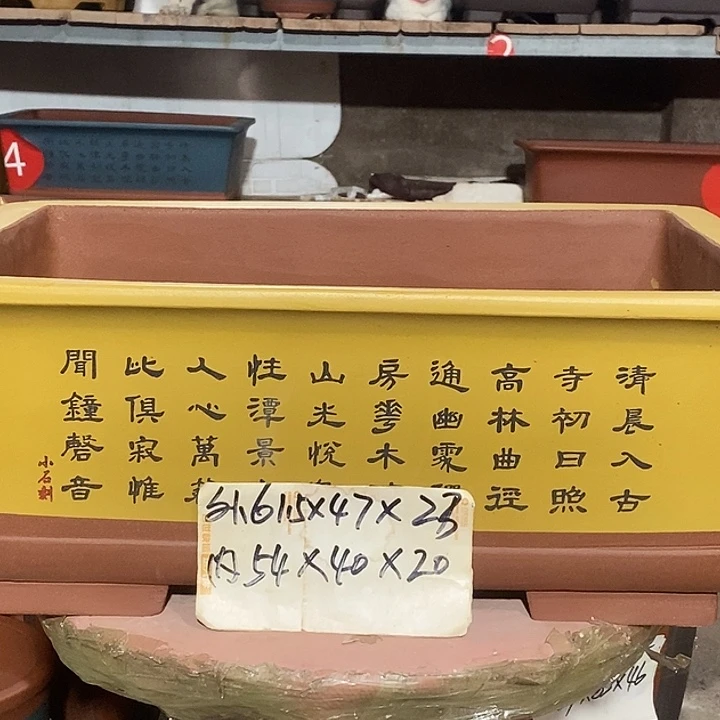 清晨入古
寺初日照
高林曲徑
通幽處
房華木
山光悅
性潭景
人心萬
此俱寂惟
聞鐘磬音
小石刻
外61.5×47×23
内54×40×20
4
2